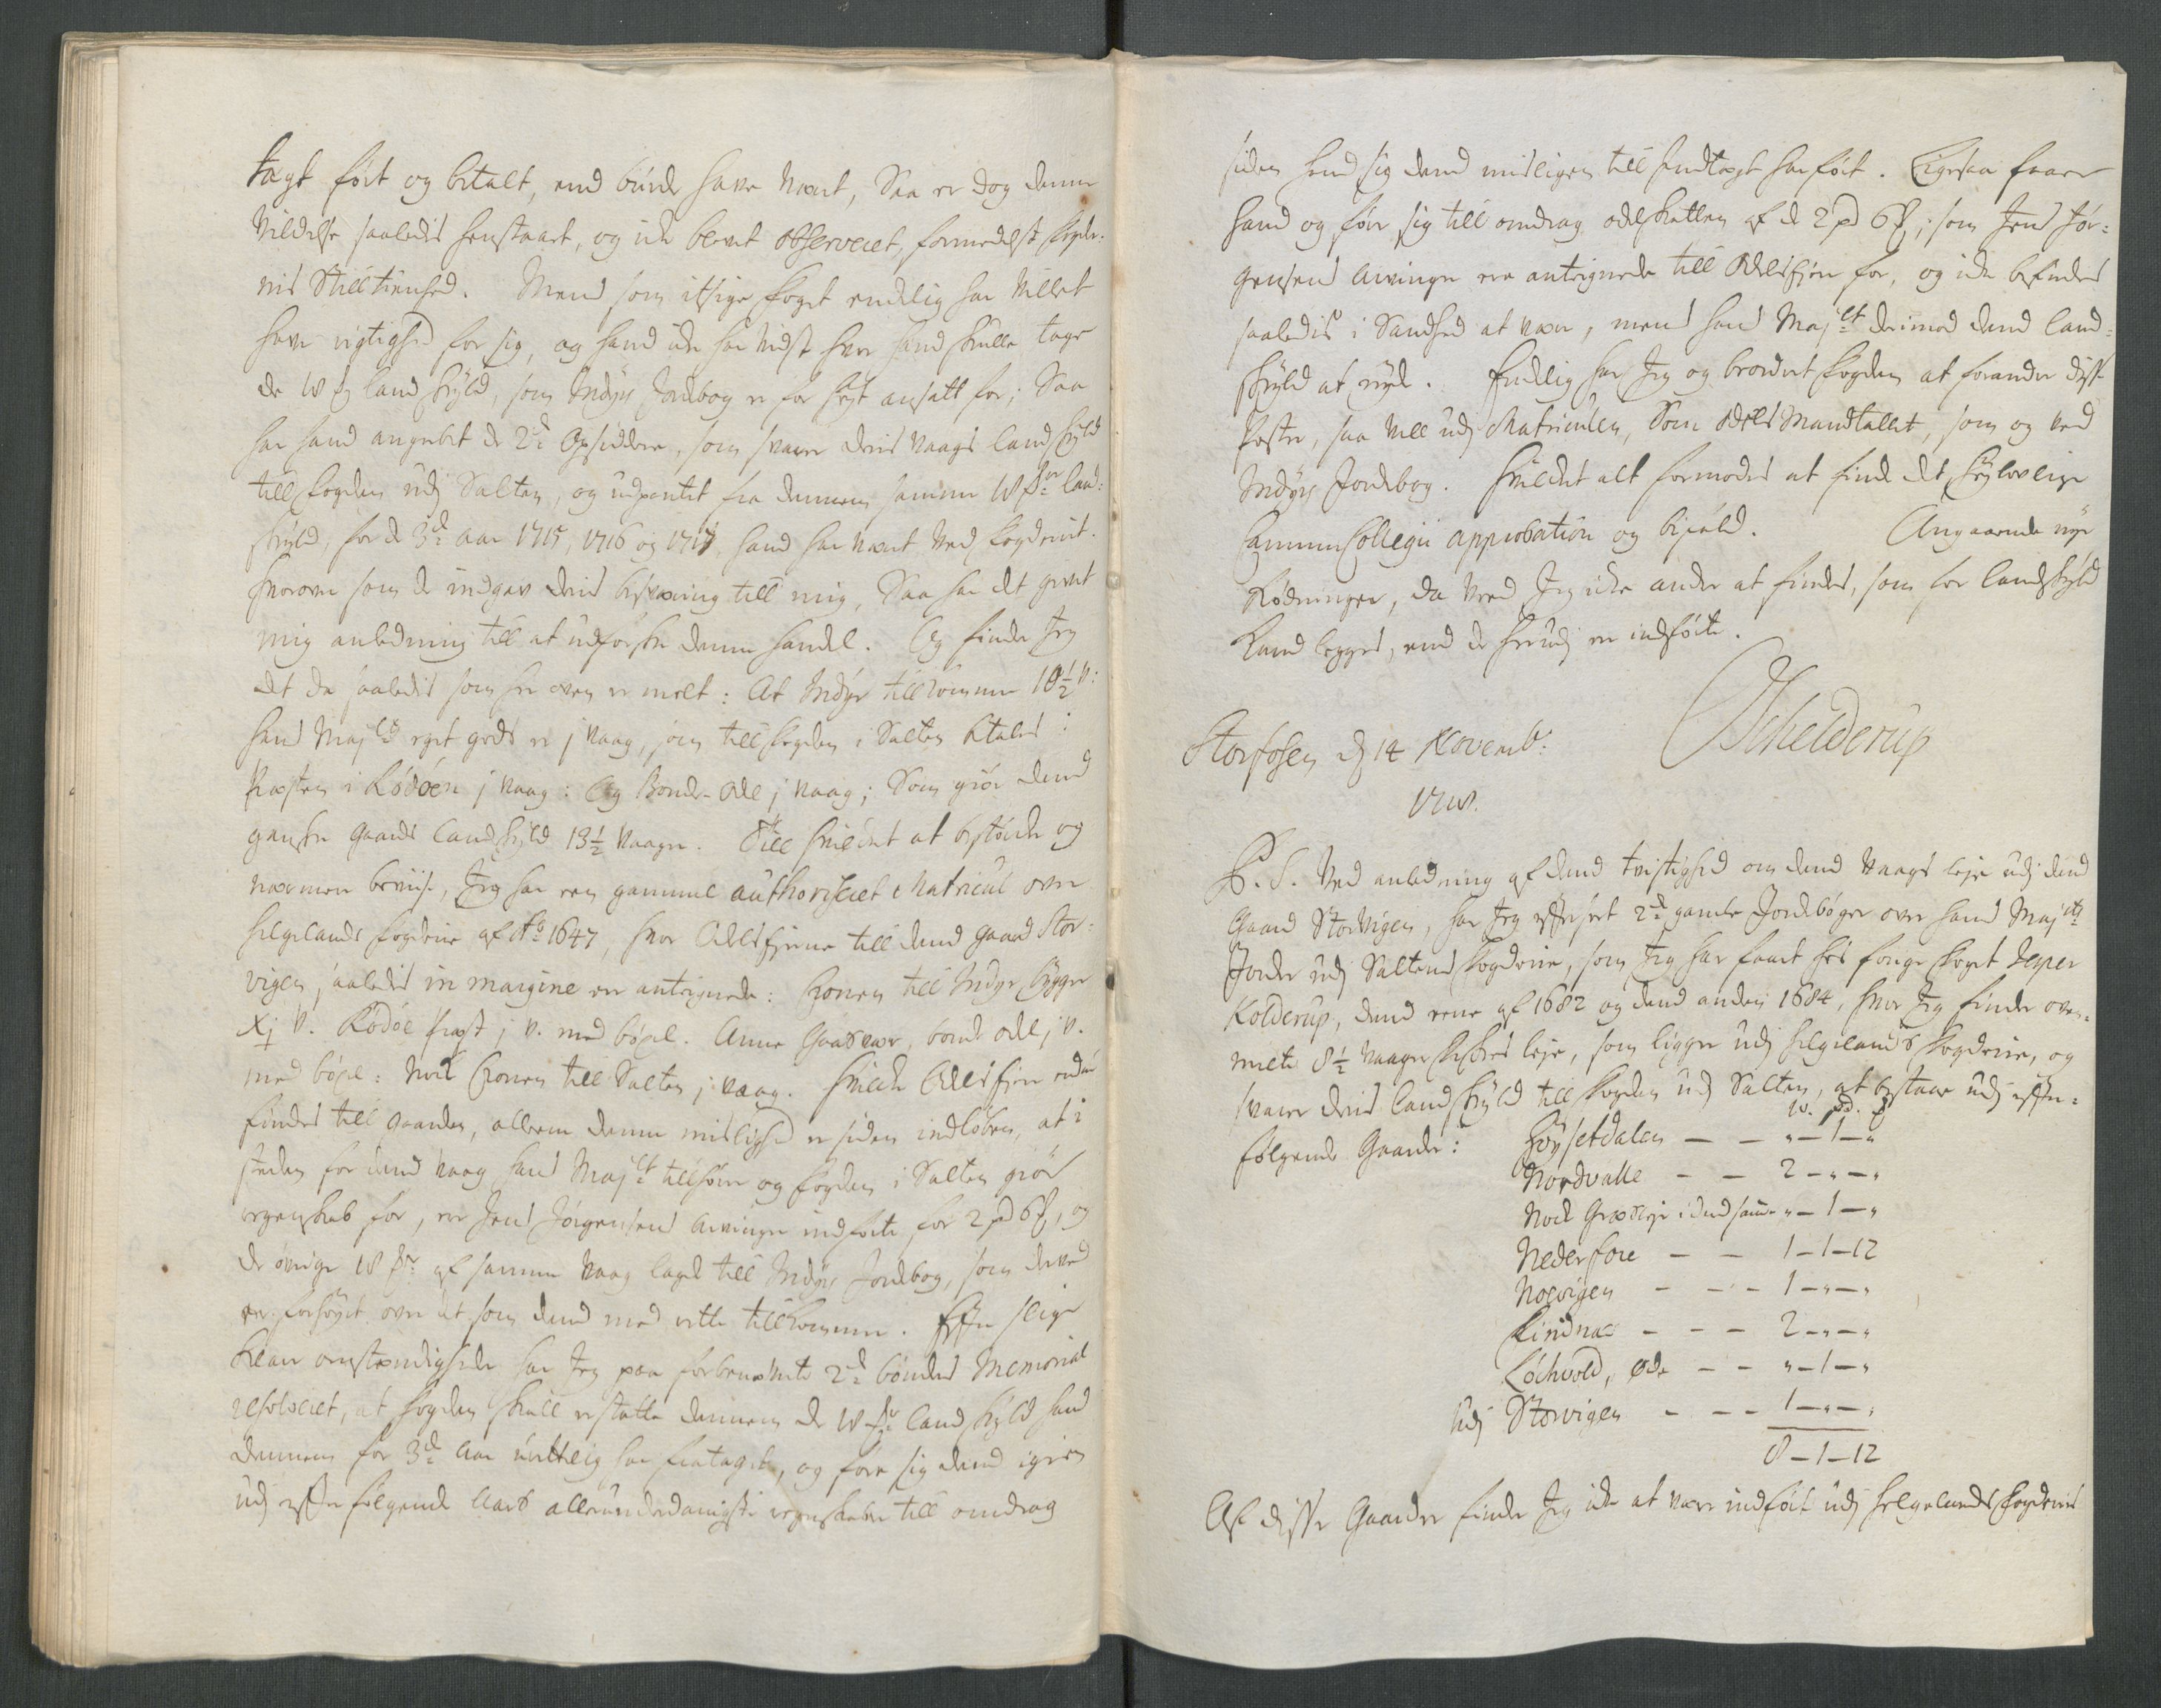 tagt ført og betalt, end burde have vært, Saa er dog denne
Vildelse saaledis henstaaet, og icke blevet observeret, formedelst fogder-
nis Stilltienhed. Mend som itzige foget endelig har villet
have rigtighed for sig, og hand icke har vidst hvor hand skulle tage
de 18 ℔ landskyld, som Indyr Jordebog er for høyt ansatt for; Saa
har hand angrebet de 2de Opsiddere, som svarer deris vaags landskyld
till fogden udj Salten, og udpantet fra dennem samme 18 ℔er land-
skyld, for de 3de aar 1715, 1716 og 1717, hand har vært ved fogderiet.
hvorover som de indgav deris besværing till mig, Saa har det givet
mig anledning till at udforske denne handel. Og finder Jeg
det da saaledis som her oven er melt: At Indyr tillkommer 10½ v:
hans Majts eget gods er j vaag, som till fogden i Salten betales:
Præsten i Rødøen j vaag: Og Bonde-Odell j vaag; Som giør dend
gandske gaards landskyld 13½ vaager. Till hvilcket at bestørcke og
nærmere beviise, Jeg har een gammel authoriseret Matricul over
helgelands fogderie af Ao 1647, hvor Odelsejerne till dend gaard Stor-
vigen, saaledis in margine er antegnede: Cronen till Indyr bygger
X½ v. Rødøe præst j v. med bøxel. Anne Gaasvær, bonde odell j v.
med bøxel: Nock Cronen till Salten j vaag. Hvilcke Odelsejere endnu
findes till gaarden, alleene denne mislighed er siden indløben, at i
steden for dend vaag hans Majts tillhører og fogden i Salten giør
regenskab for, er Jens Jørgensens Arvinger indførte for 2 pd 6 ℔, og
de øvrige 18 ℔er af samme vaag lagde till Indyrs Jordebog, som derved
er forhøyet over det som dend med rette tillkommer. Efter slige
klare omstændigheder har Jeg paa forbenævnte 2de bønders Memorial
resolveret, at fogden skall erstatte dennem de 18 ℔er landskyld hand
dennem for 3de Aar urettelig har frataget, og føre sig dend igien
udj efterfølgende Aars allerunderdanigste regenskaber till omdrag
siden hand sig dend misligen till Indtægt har ført. Ligesaa faaer
hand og føre sig till omdrag odelskatten af de 2 pd 6 ℔, som Jens Jør-
gensens Arvinger ere antegnede till Odelsejere for, og icke befindes
saaledis i Sandhed at være, mens hans Majts derimod dend land-
skyld at nyde. Endelig har Jeg og beordret fogden at forandre disse
Poster, saa vell udj Matriculen, Som Odels Mandtallet, som og ved
Indyrs Jordebog. Hvilcket alt formodes at finde det høylovlige
Cammer Collegii approbation og bifald. Angaaende nye
Rødninger, da veed Jeg icke andre at findes, som for landskyld
kand legges, end de herudj er indførte.
Storfosen d 14 Novemb:
1718.
Schelderup
P. S. Ved anledning af dend tvistighed om dend vaags leje udj dend
Gaard Storvigen, har Jeg efterseet 2de gamle Jordebøger over hans Majts
Jorder udj Saltens fogderie, som Jeg har faaet hos forige foget Jesper
Kolderup, dend eene af 1682 og dend anden 1684, hvor Jeg finder oven-
melte 8½ vaager leje, som ligger udj helgelands fogderie, og
svarer deris landskyld till fogden udj Salten, at bestaae udj efter-
følgende Gaarder:
w. pd. ℔
Høysetdalen — — „ — 1 — „
Nordvalle — — 2 — „ — „
Nock Græsleje i dend samme „ — 1 — „
Nederfore — — 1 — 1 — 12
Norvigen — — — 1 — „ — „
Rindnæs — — — 2 — „ — „
Løchvold, øde — — „ — 1 — „
Udj Storvigen — — — 1 — „ — „
8 — 1 — 12
Af disse Gaarder finder Jeg icke at være indført udj Helgelands fogderies